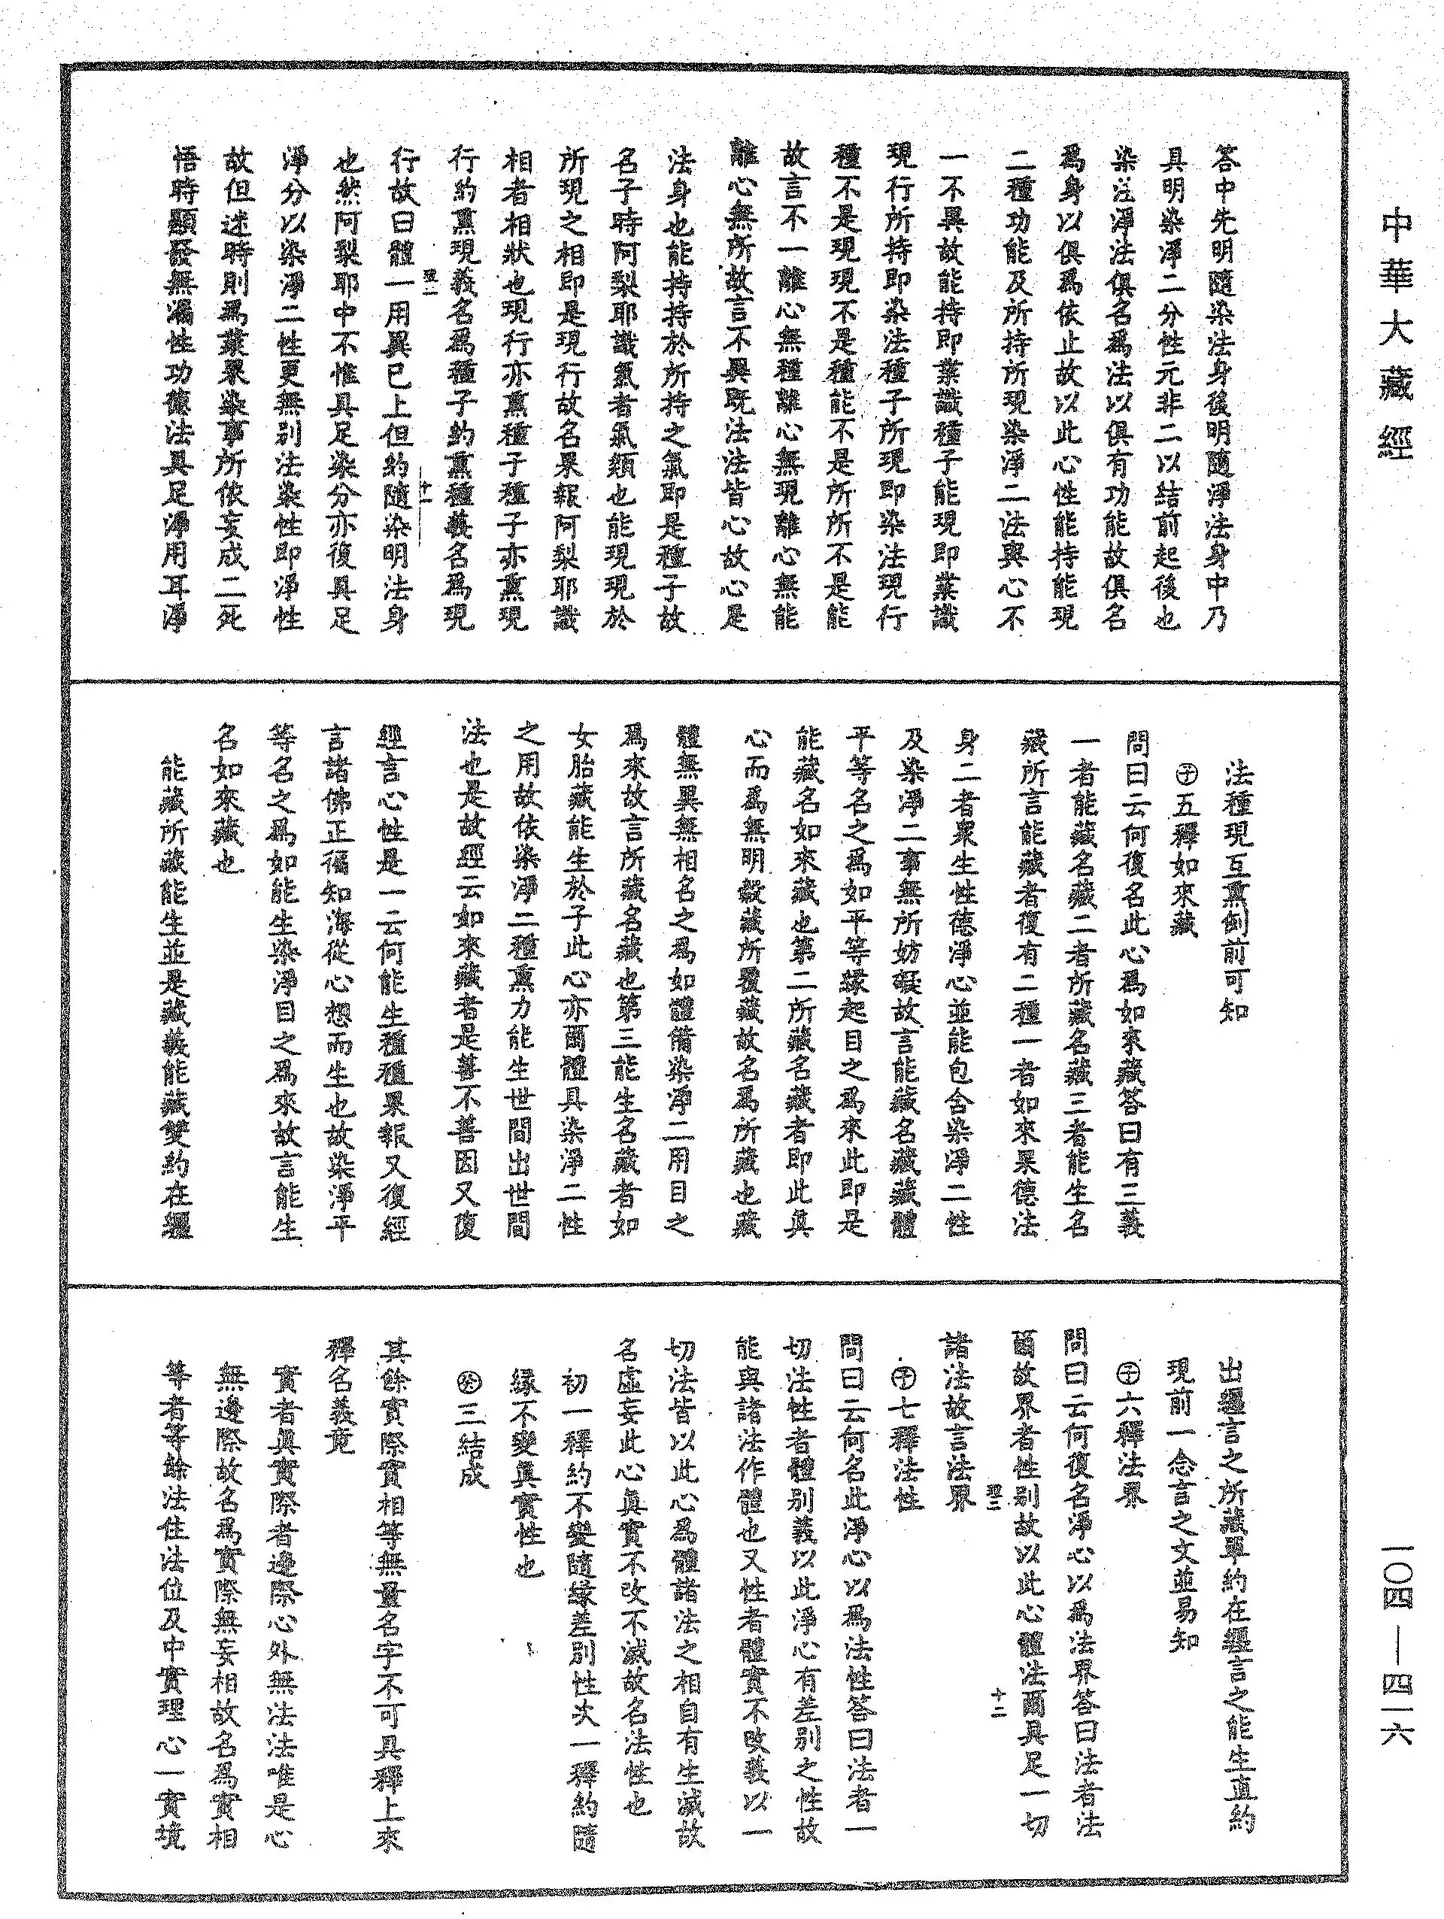 中華大藏經
答中先明隨染法身後明隨淨法身中乃
具明染淨二分性元非二以結前起後也
染法淨法俱名爲法以俱有功能故俱名
爲身以俱爲依止故以此心性能持能現
二種功能及所持所現染淨二法與心不
一不異故能持即業識種子能現即業識
現行所持即染法種子所現即染法現行
種不是現現不是種能不是所所不是能
故言不一離心無種離心無現離心無能
離心無所故言不異既法法皆心故心是
法身也能持持於所持之氣即是種子故
名子時阿梨耶識氣者氣類也能現現於
所現之相即是現行故名果報阿梨耶識
相者相狀也現行亦熏種子種子亦熏現
行約熏現義名爲種子約熏種義名爲現
行故曰體一用異已上但約隨染明法身
也然阿梨耶中不惟具足染分亦復具足
淨分以染淨二性更無別法染性即淨性
故但迷時則爲業果染事所依妄成二死
悟時顯發無漏性功德法具足淨用耳淨
法種現互熏例前可知
㊉五釋如來藏
問曰云何復名此心爲如來藏答曰有三義
一者能藏名藏二者所藏名藏三者能生名
藏所言能藏者復有二種一者如來果德法
身二者衆生性德淨心並能包含染淨二性
及染淨二事無所妨礙故言能藏名藏藏體
平等名之爲如平等緣起目之爲來此即是
能藏名如來藏也第二所藏名藏者即此真
心而爲無明㲉藏所覆藏故名爲所藏也藏
體無異無相名之爲如體備染淨二用目之
爲來故言所藏名藏也第三能生名藏者如
女胎藏能生於子此心亦爾體具染淨二性
之用故依染淨二種熏力能生世間出世間
法也是故經云如來藏者是善不善因又復
經言心性是一云何能生種種果報又復經
言諸佛正徧知海從心想而生也故染淨平
等名之爲如能生染淨目之爲來故言能生
名如來藏也
能藏所藏能生並是藏義能藏雙約在纏
出纏言之所藏單約在纏言之能生直約
現前一念言之文並易知
㊉六釋法界
問曰云何復名淨心以爲法界答曰法者法
爾故界者性別故以此心體法爾具足一切
諸法故言法界
㊉七釋法性
問曰云何名此淨心以爲法性答曰法者一
切法性者體別義以此淨心有差別之性故
能與諸法作體也又性者體實不改義以一
切法皆以此心爲體諸法之相自有生滅故
名虛妄此心真實不改不滅故名法性也
初一釋約不變隨緣差別性次一釋約隨
緣不變真實性也
㊉三結成
其餘實際實相等無量名字不可具釋上來
釋名義竟
實者真實際者邊際心外無法法唯是心
無邊際故名爲實際無妄相故名爲實相
等者等餘法住法位及中實理心一實境
一〇四—四一六